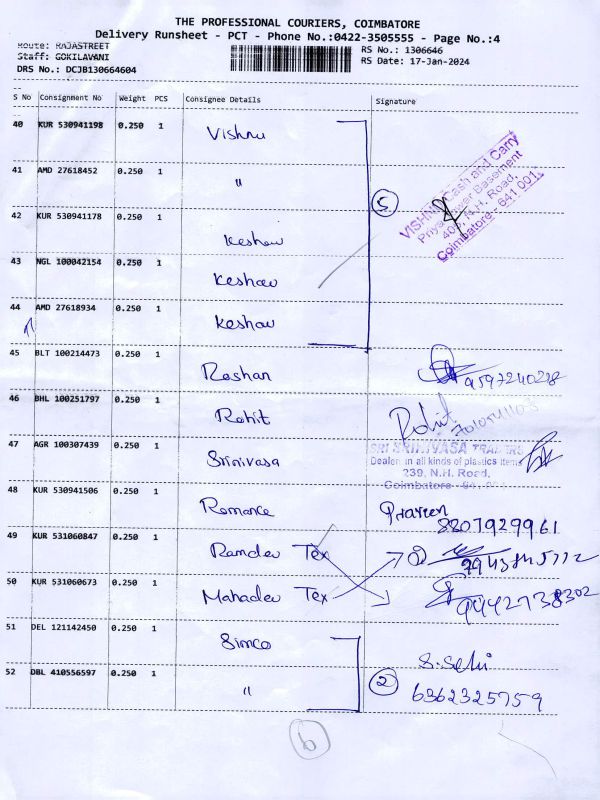 THE PROFESSIONAL COURIERS, COIMBATORE
Delivery Runsheet - PCT - Phone No.:0422-3505555 - Page No.:4
Route: RAJASTREET
Staff: GOKILAVANI
DRS No.: DCJB130664604
RS No.: 1306646
RS Date: 17-Jan-2024
S No Consignment No Weight PCS Consignee Details Signature
40 KUR 530941198 0.250 1 Vishnu
41 AMD 27618452 0.250 1 "
42 KUR 530941178 0.250 1 Keshav
43 NGL 100042154 0.250 1 Keshav
44 AMD 27618934 0.250 1 Keshav
5
VISHNU Cash and Carry
Basement
N.H. Road,
Coimbatore - 641 001.
45 BLT 100214473 0.250 1 Roshan 9597240228
46 BHL 100251797 0.250 1 Rohit Rohit
47 AGR 100307439 0.250 1 Srinivasa
SRI SRINIVASA TRADERS
Dealer in all kinds of plastics items
239, N.H. Road,
Coimbatore
48 KUR 530941506 0.250 1 Romance Praveen
8807929961
49 KUR 531060847 0.250 1 Ramdev Tex
50 KUR 531060673 0.250 1 Mahadev Tex
51 DEL 121142450 0.250 1 Simco
52 DBL 410556597 0.250 1 "
2
6362325759
6